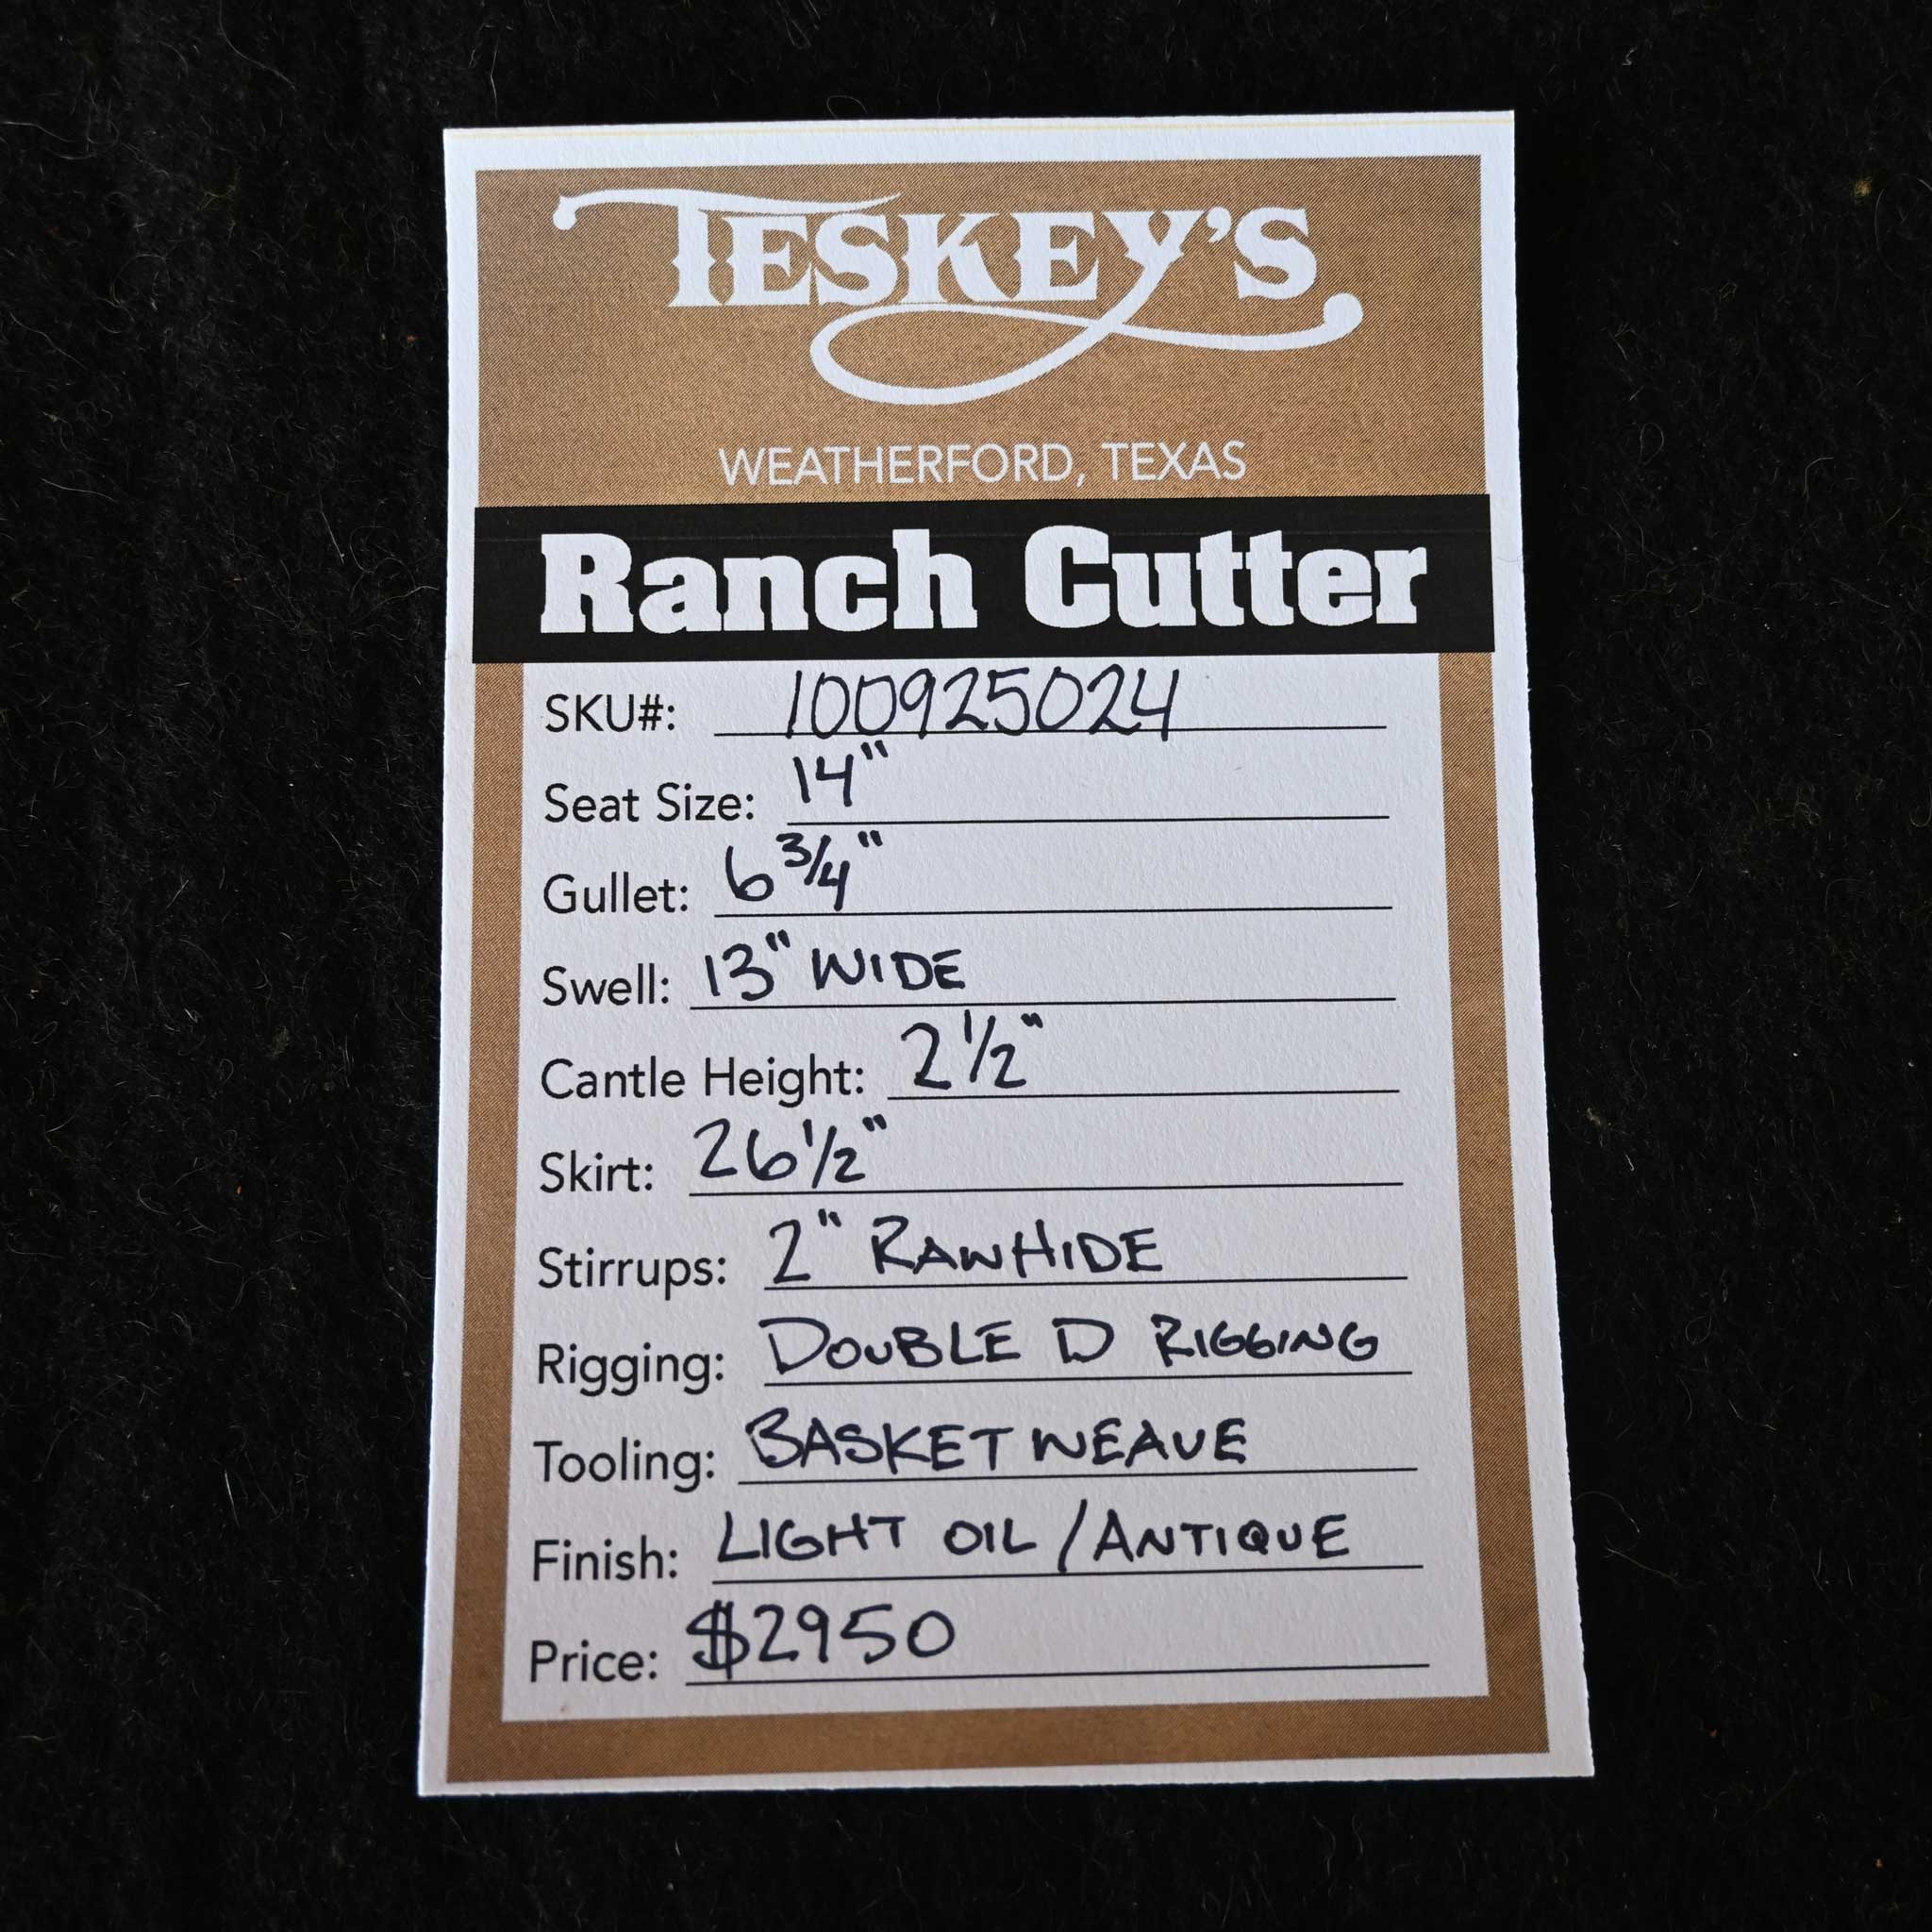 TESKEY'S
WEATHERFORD, TEXAS
Ranch Cutter
SKU#: 100925024
Seat Size: 14"
Gullet: 6 3/4"
Swell: 13" WIDE
Cantle Height: 2 1/2"
Skirt: 26 1/2"
Stirrups: 2" RAWHIDE
Rigging: DOUBLE D RIGGING
Tooling: BASKET WEAVE
Finish: LIGHT OIL / ANTIQUE
Price: $2950